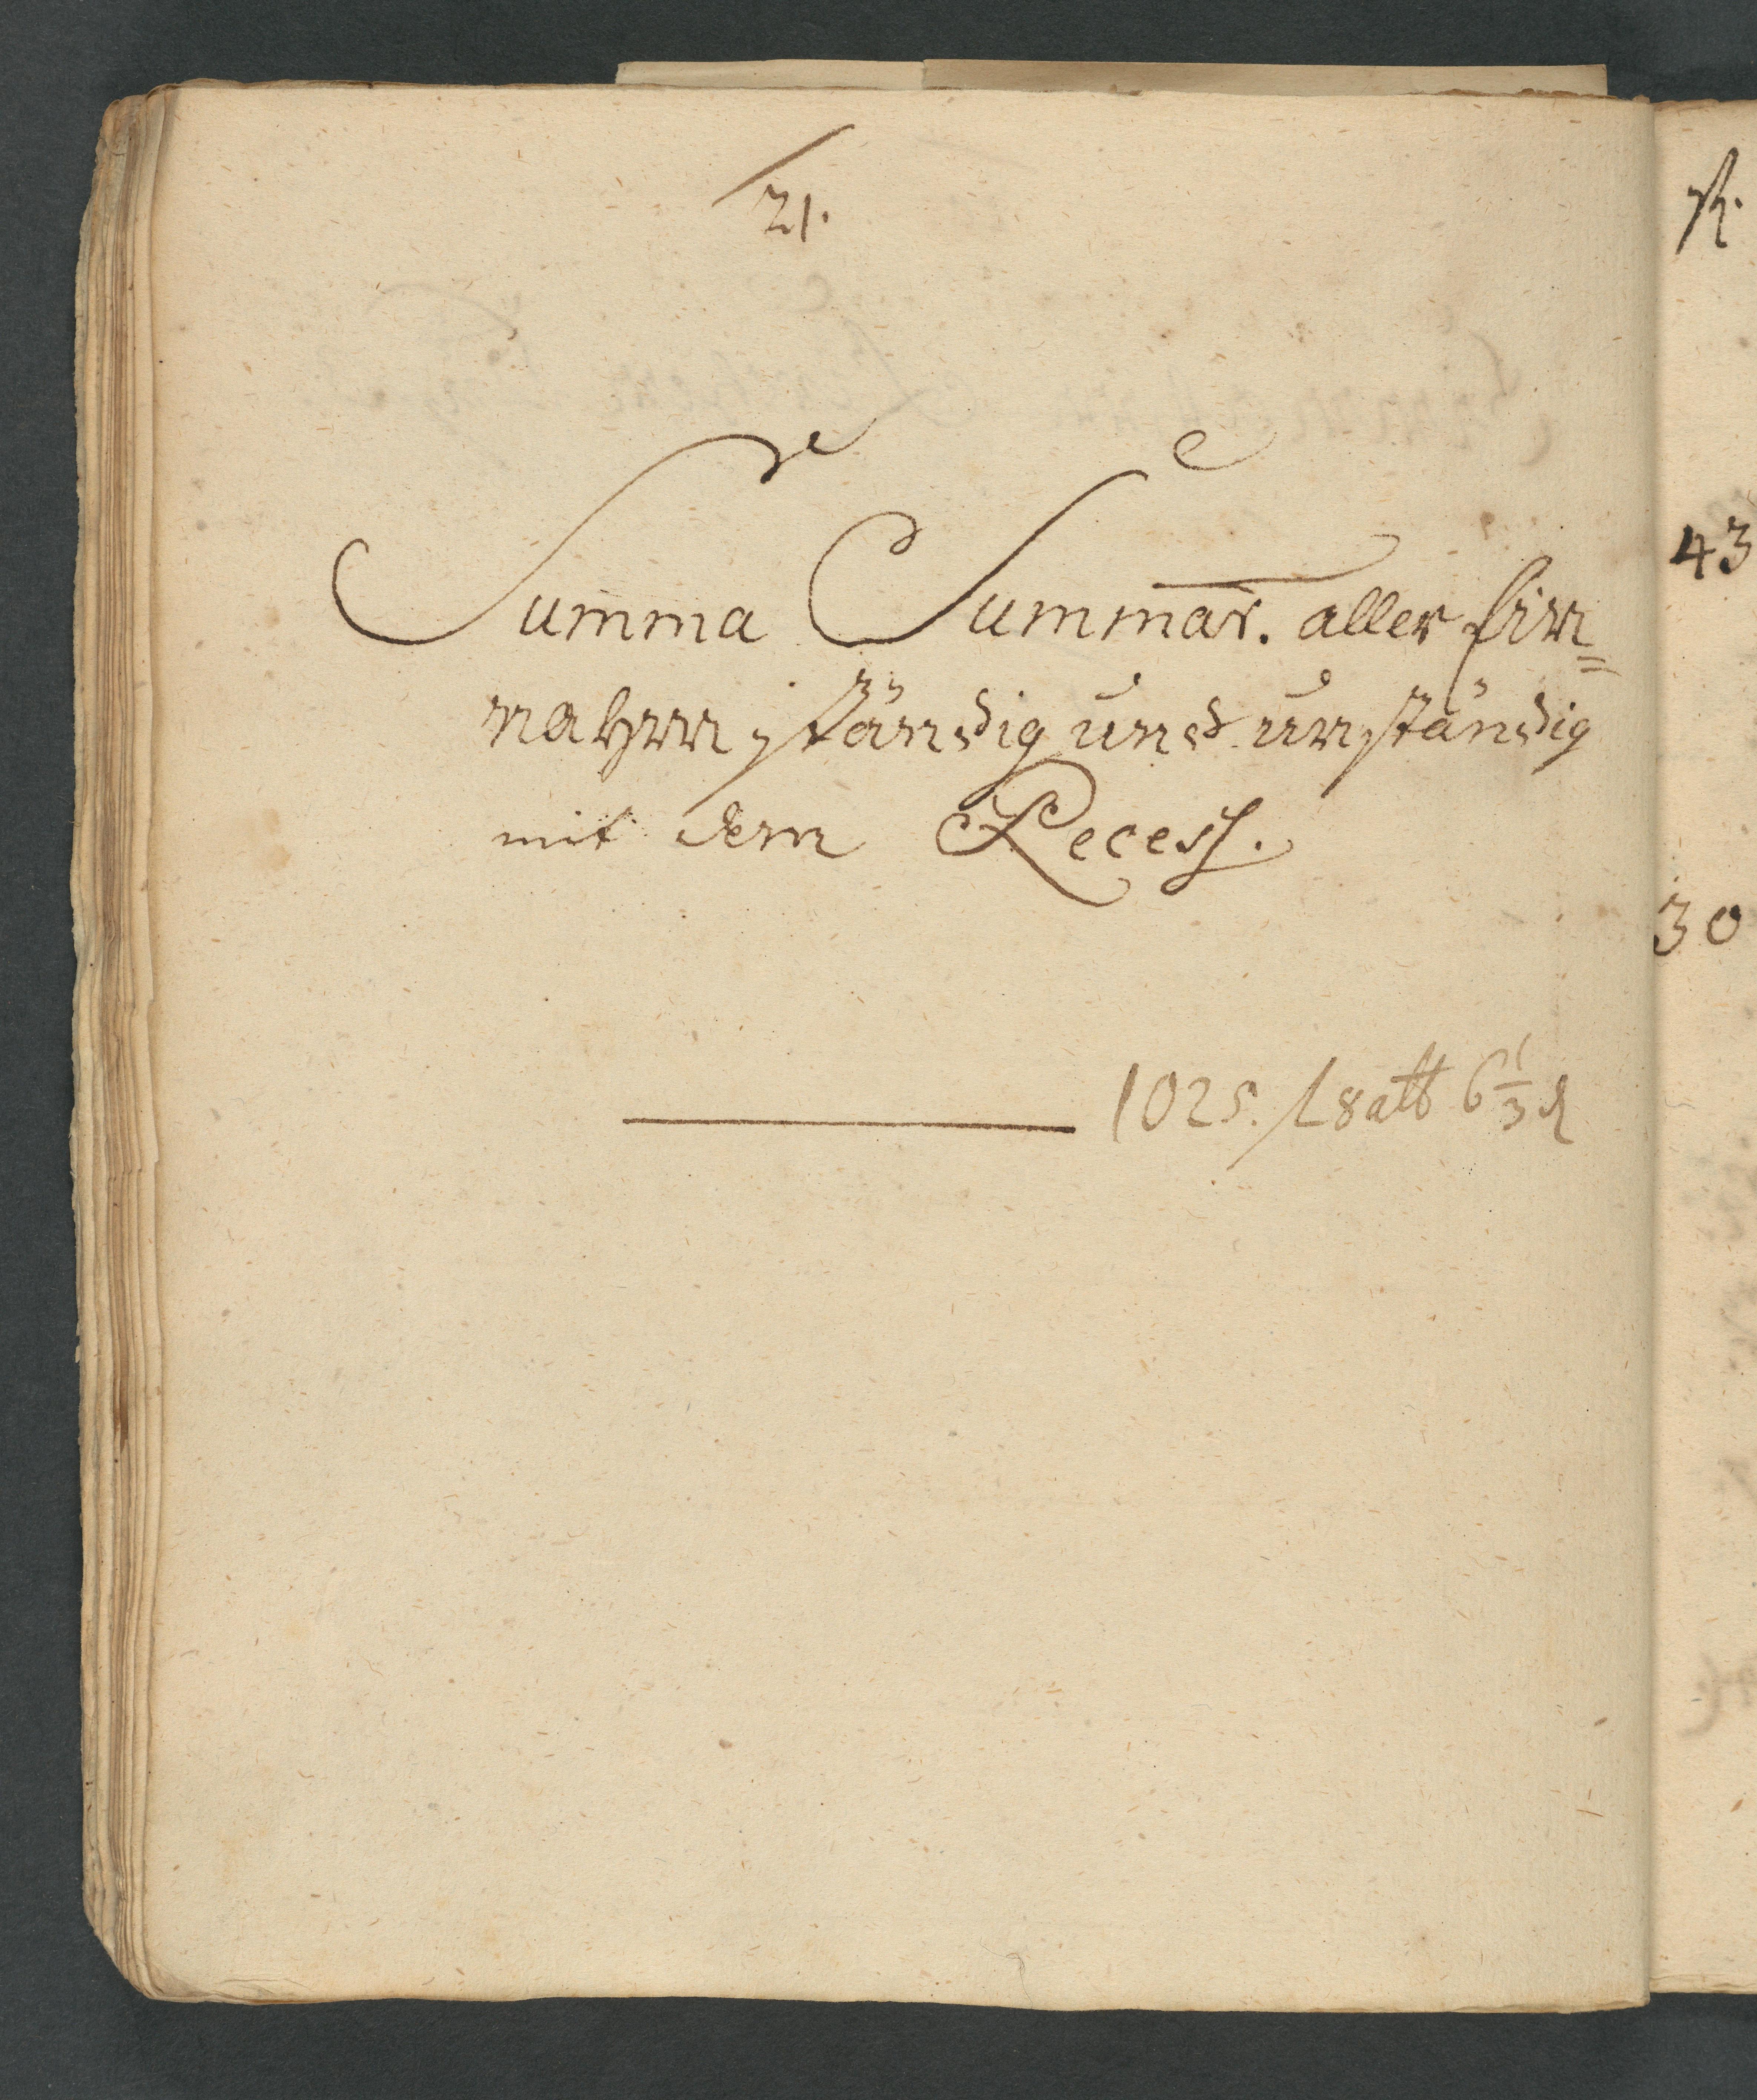 21.
Summa Summar. aller Ein=
nahmen ständig und unständig
mit dem Recess.
1025. f 18 alb 6 1/3 d
R.
43
30